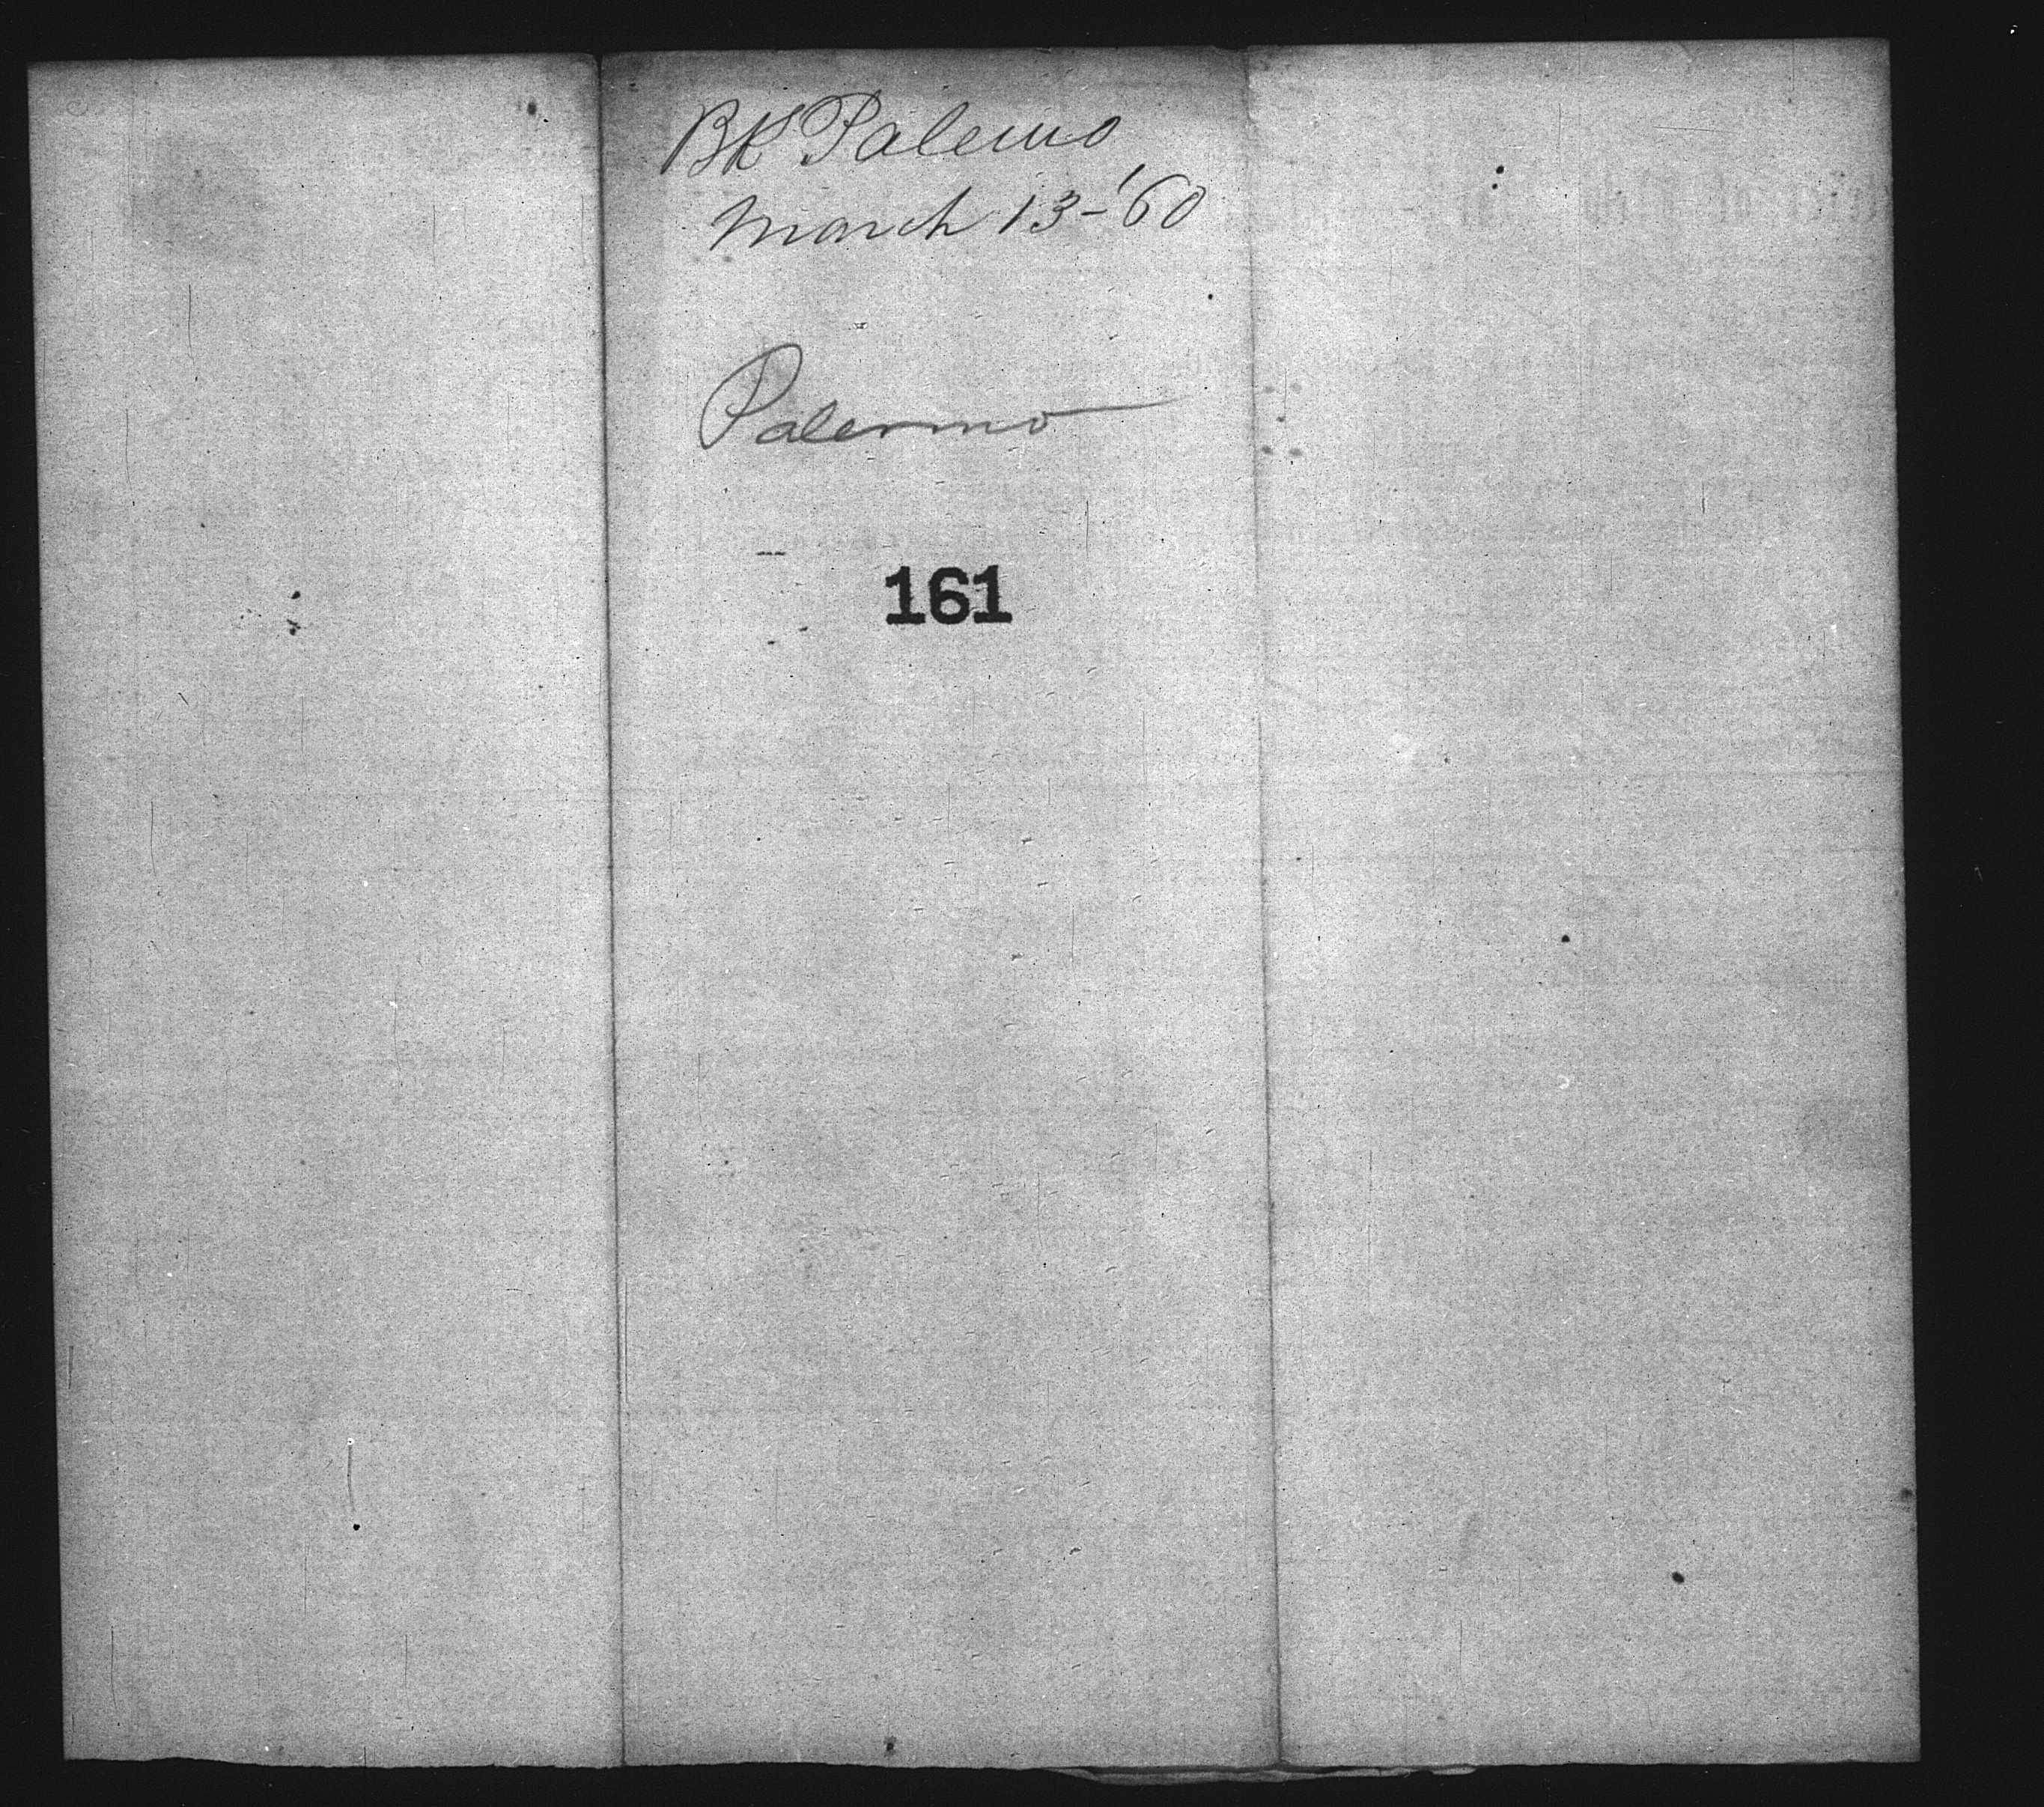 BK Palermo
March 13-'60
Palermo
161